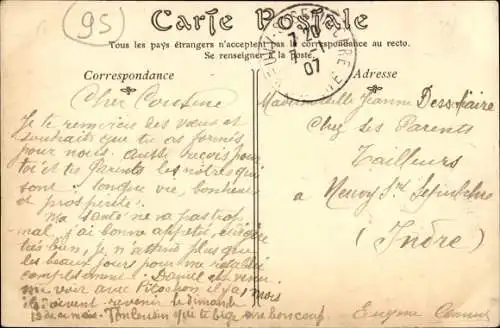 95
Carte Postale
Tous les pays étrangers n'acceptent pas la correspondance au recto.
Se renseigner à la poste.
7 20
7 - 1
07
INDRE
Correspondance
Adresse
Cher Cousine
Je te remercie des vœux et
souhaits que tu as formés
pour nous. aussi reçois pour
toi et tes Parents les nôtres qui
sont : longue vie, bonheur
et prospérité !
Ma santé ne va pas trop
mal, j'ai bonne appétit,
très bien, je n'attend plus que
les beaux jours pour me rétablir
complètement. Daniel est venu
me voir avec il y a, mois
ils doivent revenir le dimanche
13 de ce mois. Ton cousin qui te bige bien
Mademoiselle Jeanne Dess
Chez ses Parents
Tailleurs
a Neuvy St Sepulchre
(Indre)
Eugène